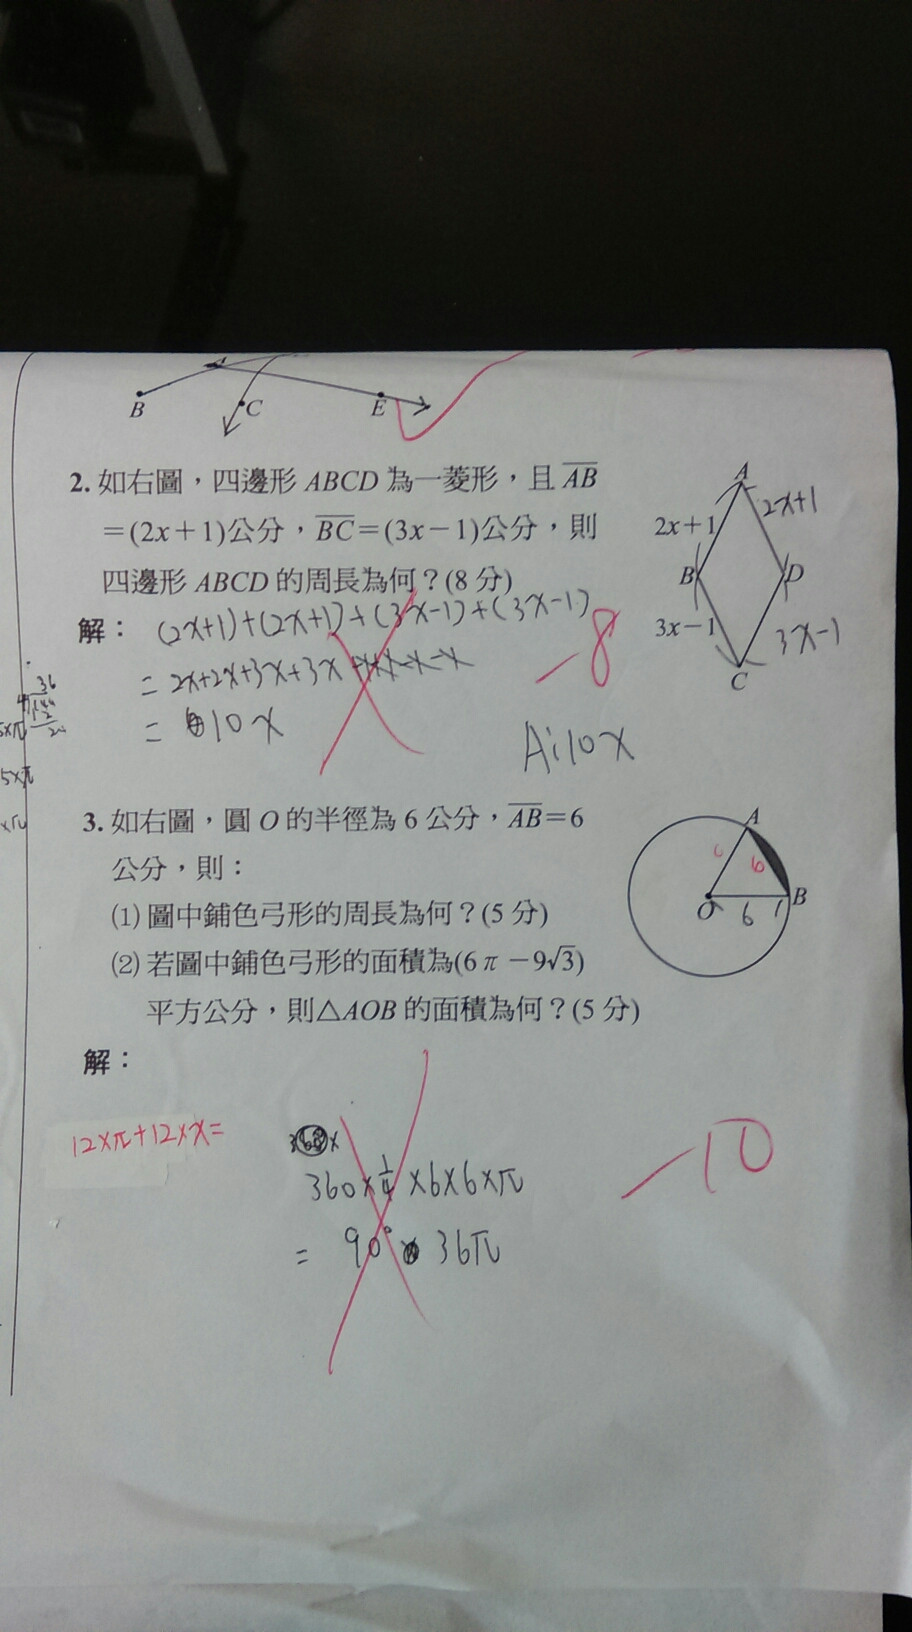 B
C
E
2. 如右圖，四邊形 ABCD 為一菱形，且 AB
＝(2x＋1)公分，BC＝(3x－1)公分，則
四邊形 ABCD 的周長為何？(8 分)
A
2x+1
2x+1
B
D
3x－1
3x-1
C
解：
(2x+1)+(2x+1)+(3x-1)+(3x-1)
= 2x+2x+3x+3x
= 10x
-8
A:10x
36
5xπ
3. 如右圖，圓 O 的半徑為 6 公分，AB＝6
公分，則：
⑴ 圖中鋪色弓形的周長為何？(5 分)
⑵ 若圖中鋪色弓形的面積為(6π－9√3)
平方公分，則△AOB 的面積為何？(5 分)
A
6
O
6
B
解：
12×π+12×x=
360×1/4×6×6×π
= 90° 36π
-10